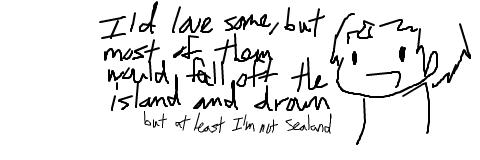 I'd love some, but
most of them
would fall off the
island and drown
but at least I'm not Sealand